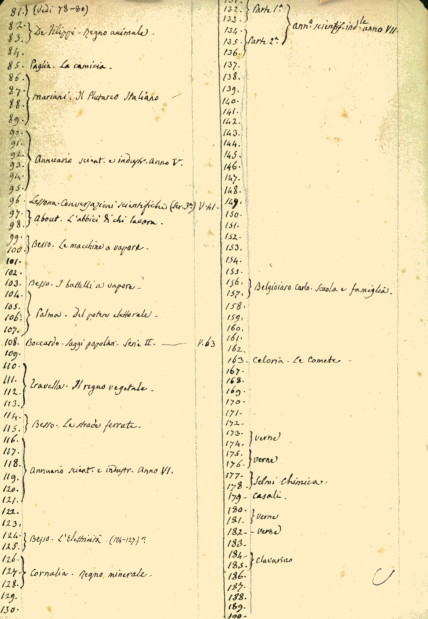 81. (Vedi 78-80)
82.
83. De Filippi - Regno animale.
84.
85. Paglia. La camicia.
86.
87.
88. Mariani. Il Plutarco Italiano
89.
90.
91.
92. Annuario scient. e industr. Anno V.
93.
94.
95.
96. Lessona. Conversazioni scientifiche (Ser. 3ª) V. 41.
97.
98. About. L'abbicì di chi lavora.
99.
100. Besso. Le macchine a vapore.
101.
102.
103. Besso. I battelli a vapore.
104.
105.
106. Palma. Del potere elettorale.
107.
108. Boccardo. Saggi popolari. Serie II. V. 63
109.
110.
111.
112. Travella. Il regno vegetale.
113.
114.
115. Besso. Le strade ferrate.
116.
117.
118.
119. Annuario scient. e industr. Anno VI.
120.
121.
122.
123.
124.
125. Besso. L'elettricità. (124-127)
126.
127. Cornalia. Regno minerale.
128.
129.
130.
131.
132. Parte 1ª
133.
134.
135. Parte 2ª
136.
ann. scientif. ind.le anno VII.
137.
138.
139.
140.
141.
142.
143.
144.
145.
146.
147.
148.
149.
150.
151.
152.
153.
154.
155.
156.
157. Belgioioso Carlo. Scuola e famiglia.
158.
159.
160.
161.
162.
163. Celoria. Le Comete.
167.
168.
169.
170.
171.
172.
173.
174. Verne
175.
176. Verne
177.
178. Selmi Chimica.
179. Casali.
180.
181. Verne
182. Verne
183.
184.
185. Clavarino
186.
187.
188.
189.
190.